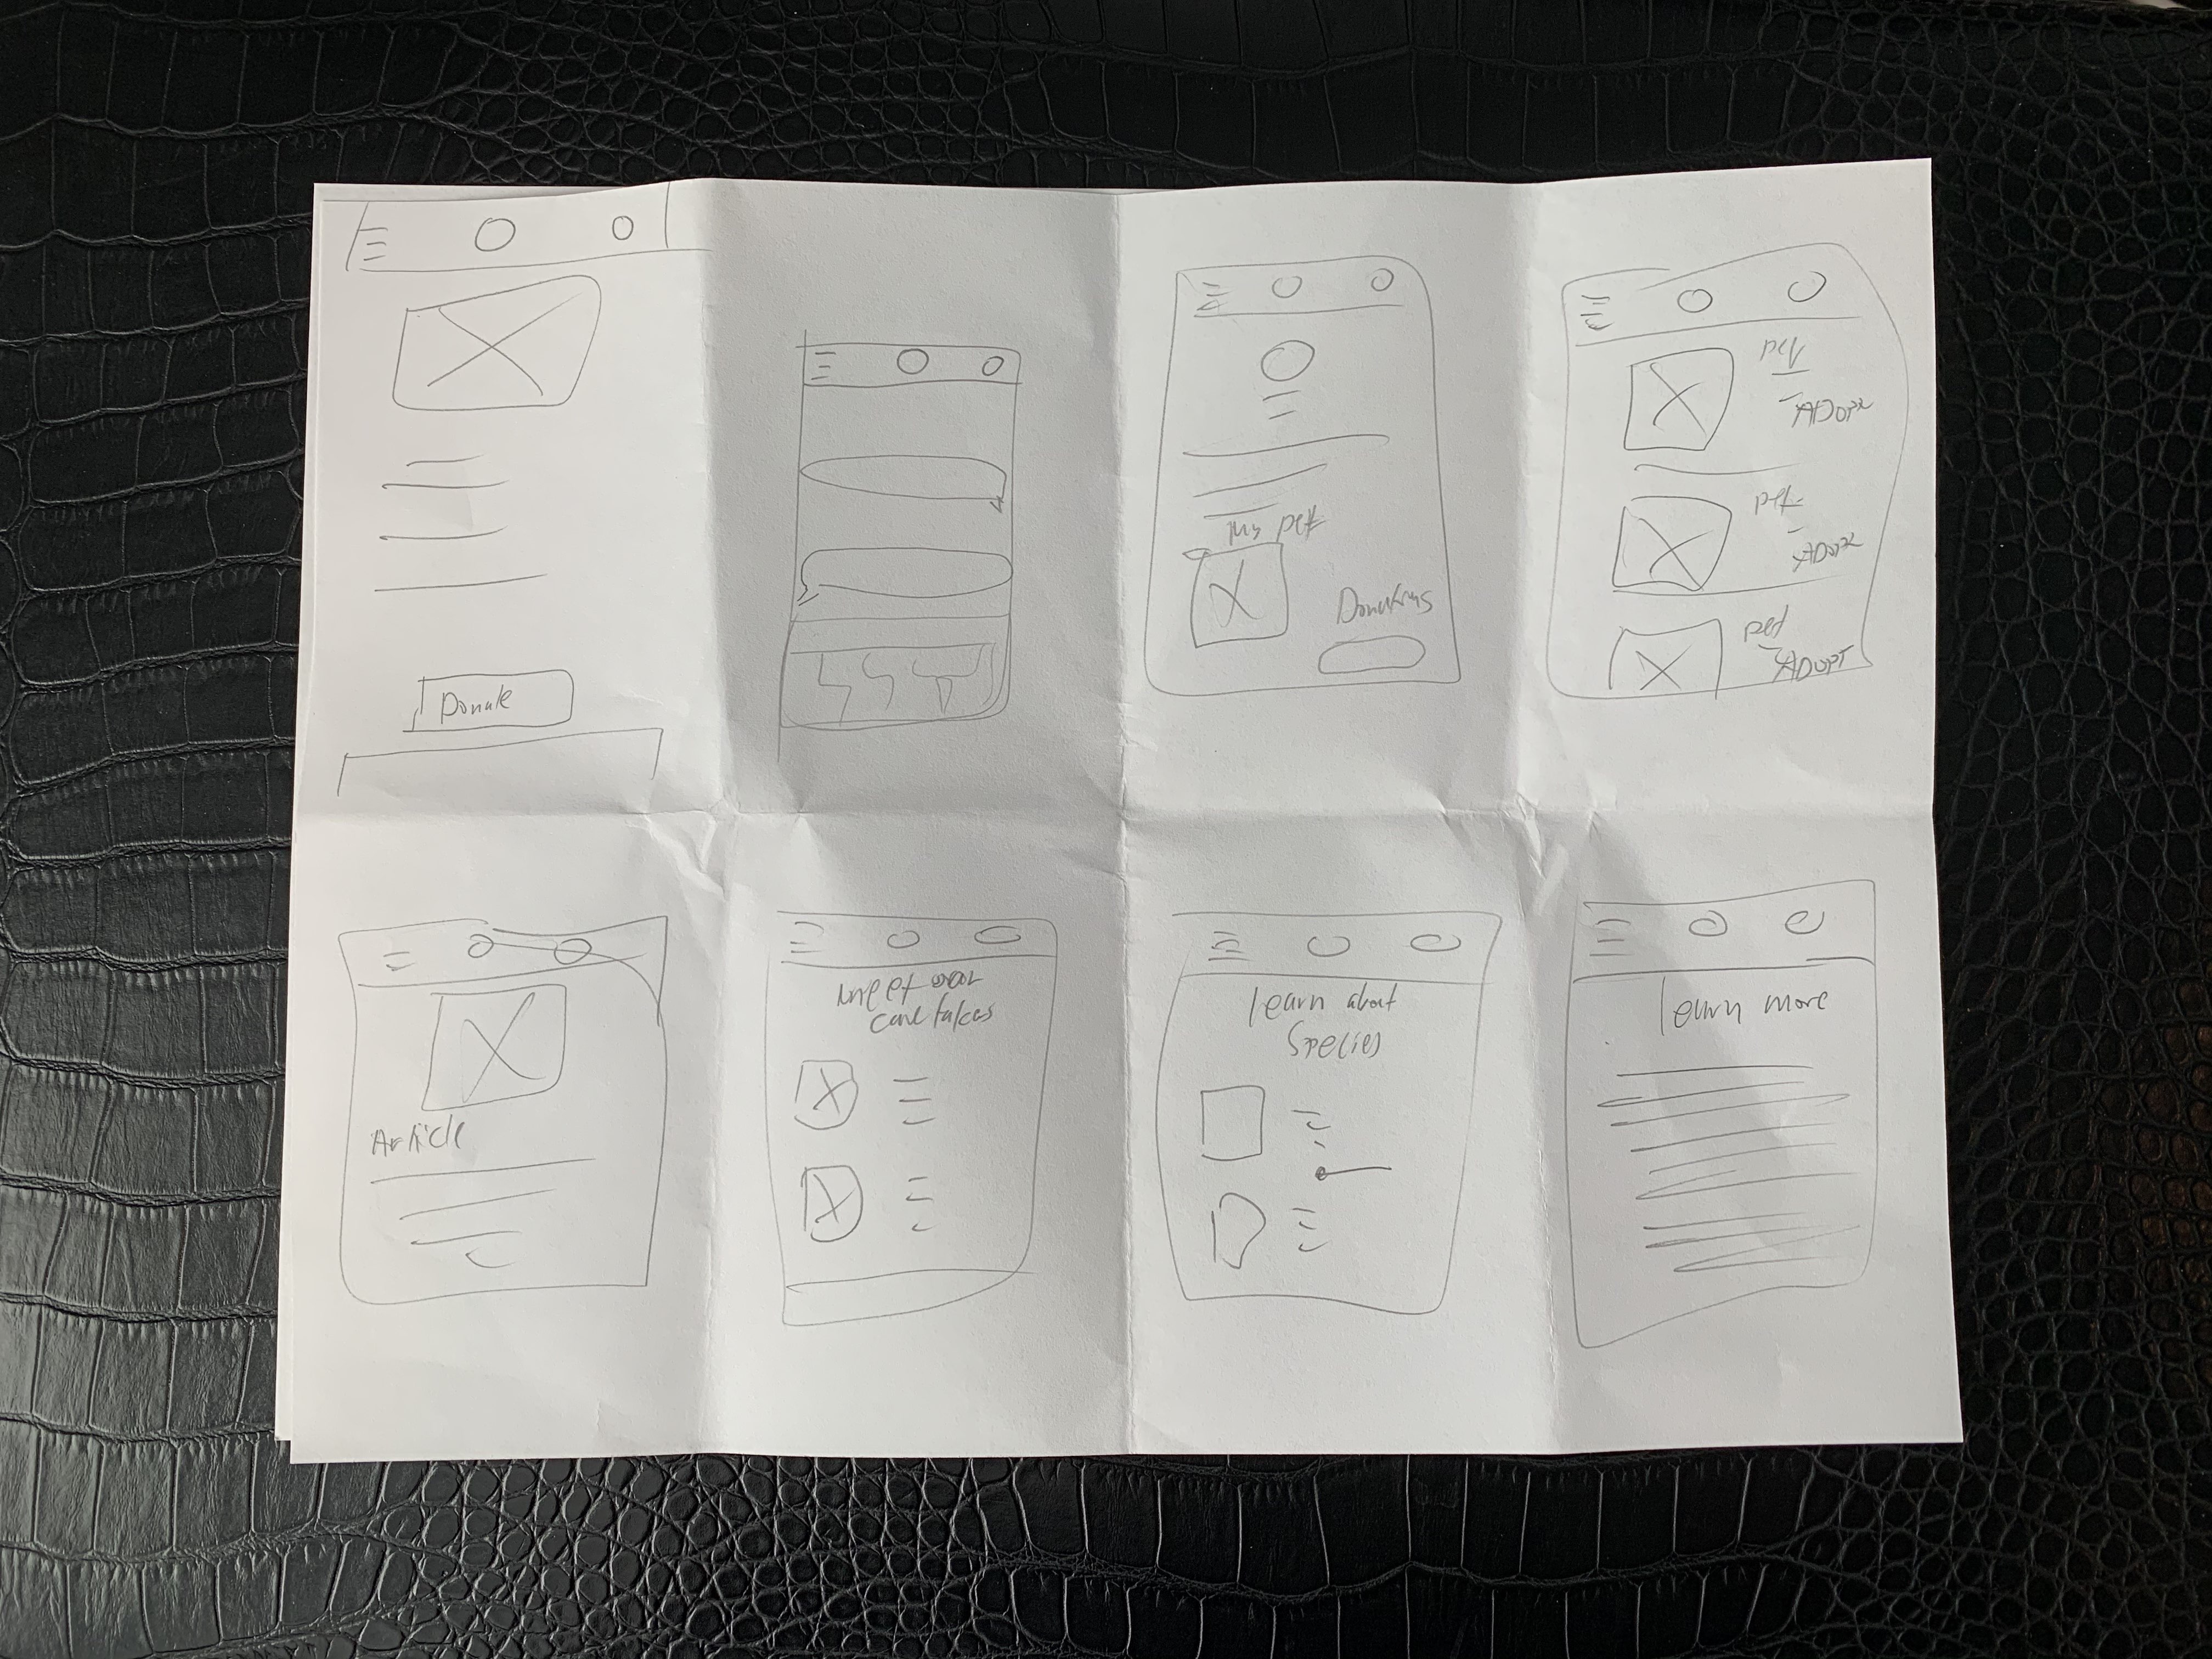 Donate
My pet
Donations
ADOPT
pet
ADOPT
pet
ADOPT
Article
Meet our
caretakers
learn about
Species
learn more